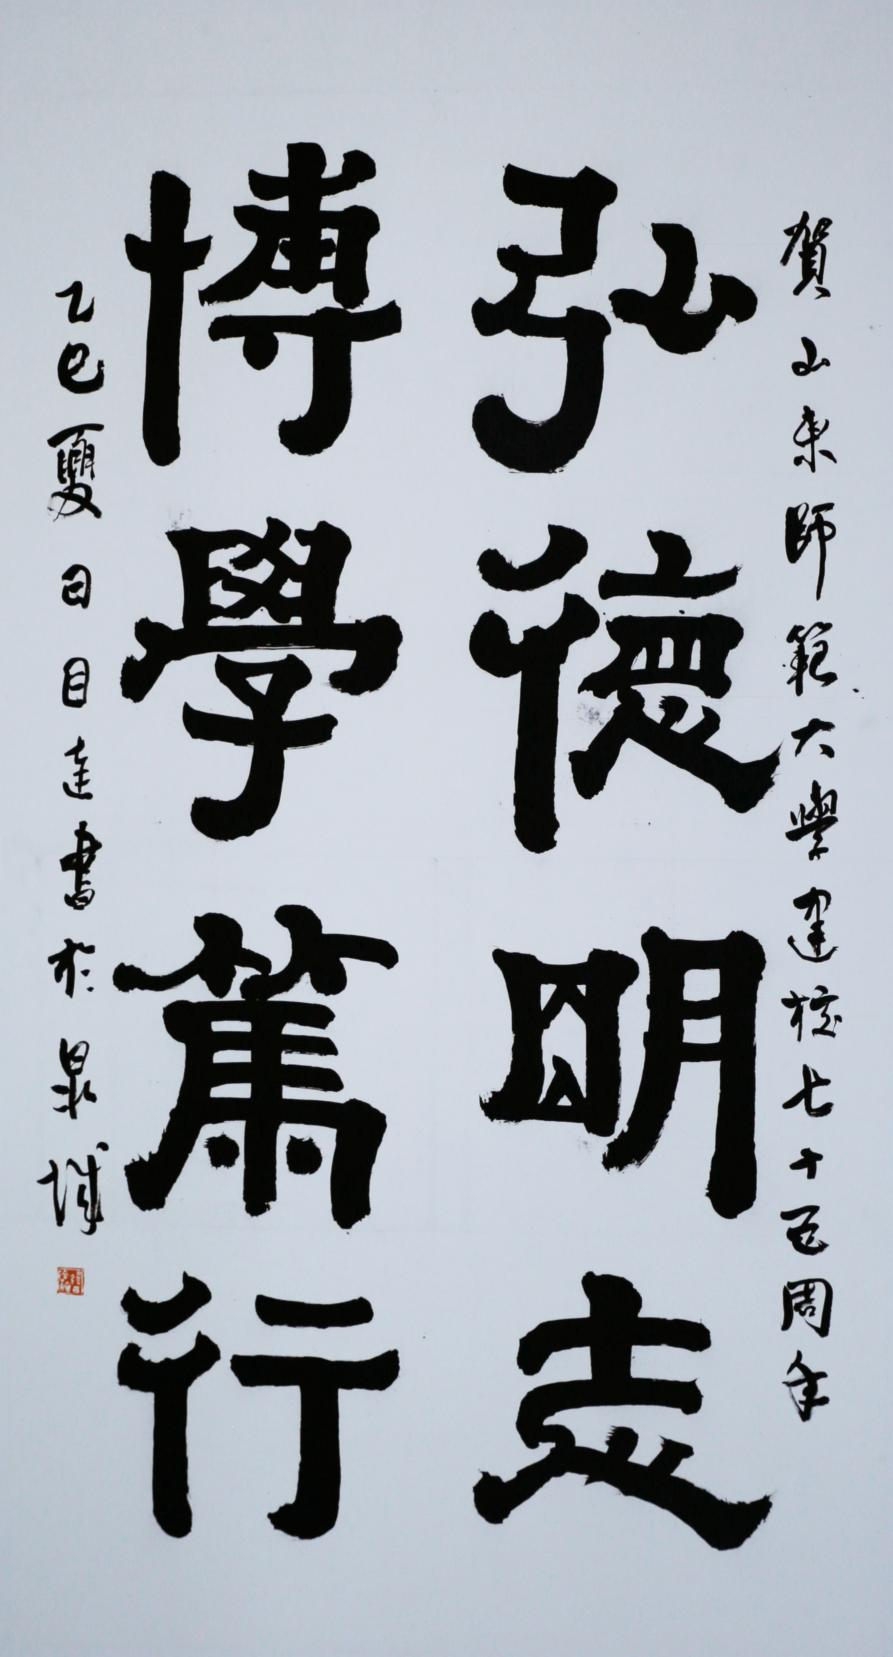 賀山東師範大學建校七十五周年
弘德明志
博學篤行
乙巳夏日目達書於泉城